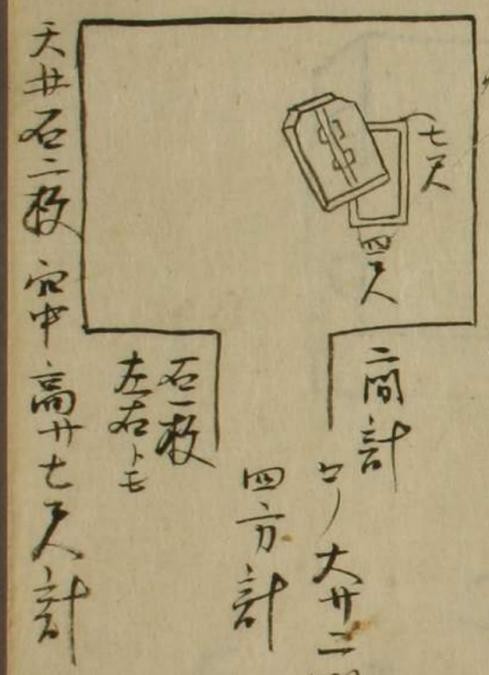 七尺
四尺
二間計
口ノ大サ二
四方計
石一枚
左右トモ
天井石二枚 穴中高サ七尺計